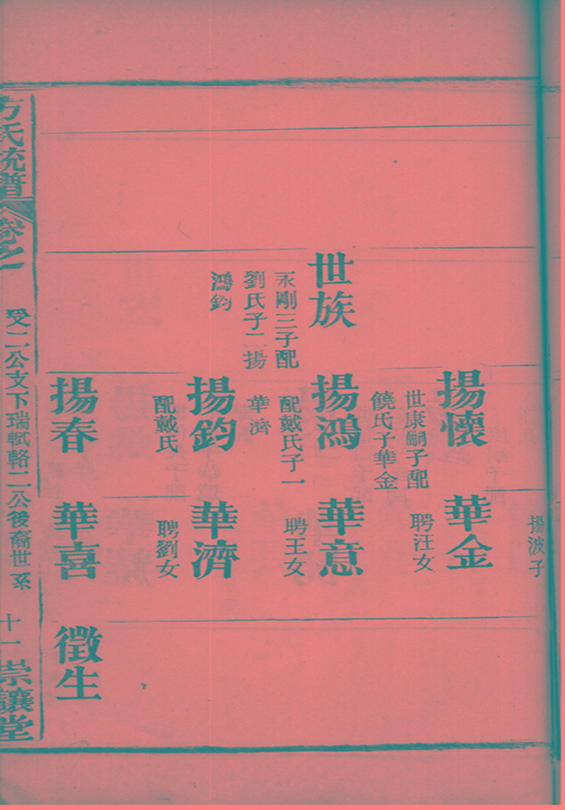 揚波子
世族
永剛三子配
劉氏子二揚
鴻鈞
揚懷
世康嗣子配
饒氏子華金
揚鴻
配戴氏子一
華濟
揚鈞
配戴氏
揚春
華金
聘汪女
華意
聘王女
華濟
聘劉女
華喜
徵生
方氏統譜
卷之
受二公支下瑞軾輅二公後裔世系
十一
崇讓堂